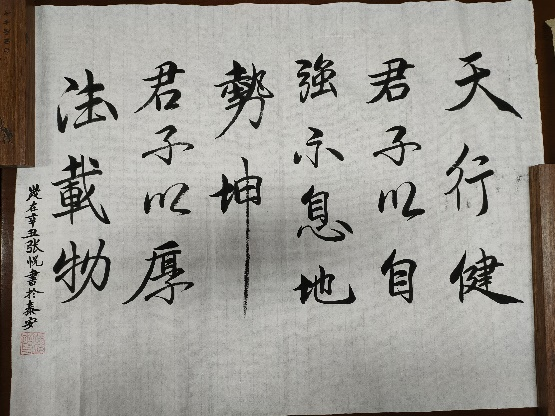 天行健
君子以自
強不息地
勢坤
君子以厚
德載物
歲在辛丑张悦書於泰安